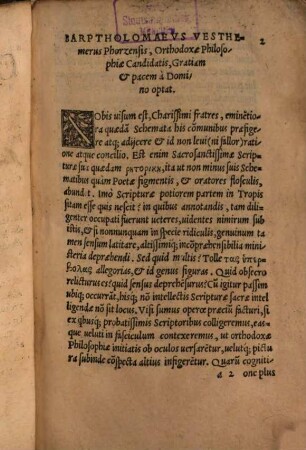 BARPTHOLOMAEVS VESTHE- 2
merus Phorzensis, Orthodoxæ Philoso-
phiæ Candidatis, Gratiam
& pacem à Domi
no optat.
NObis uisum est, Charissimi fratres, eminētio
ra quædā Schemata his cōmunibus præfige
re atq; adijcere & id non leui (ni fallor) rati
one atque concilio. Est enim Sacrosanctissimæ Scriptu
ræ sua quædam ρητορικη, ita ut non minus suis Sche
matibus quàm Poetæ figmentis, & oratores flosculis,
abundēt. Imò Scripturæ potiorem partem in Tropis
sitam esse quis nescit? in quibus annotandis, tam diligen
ter occupati fuerunt ueteres, uidentes nimirum sub
istis, & si nonnunquam in specie ridiculis, genuinum ta
men sensum latitare, altissimaq; incōpræhensibilia mini
steria deprahendi. Sed quid multis? Tolle τας ὑπερ-
βολας allegorias, & id genus figuras. Quid obsecro
relicturus es? quid sensus deprehesurus? Cū igitur passim
ubiq; occurrāt, hisq; nō intellectis Scripturæ sacræ intel
ligendæ nō sit locus. Visi sumus operæ præciū facturi, si
ex quibusq; probatissimis Scriptoribus colligeremus, eas-
que ueluti in fasciculum contexeremus, ut orthodoxæ
Philosophiæ initiatis ob oculos uersarētur, uelutq; pictu
ra subinde cōspecta altius infigerētur. Quarū cognitī-
a 2 one plus